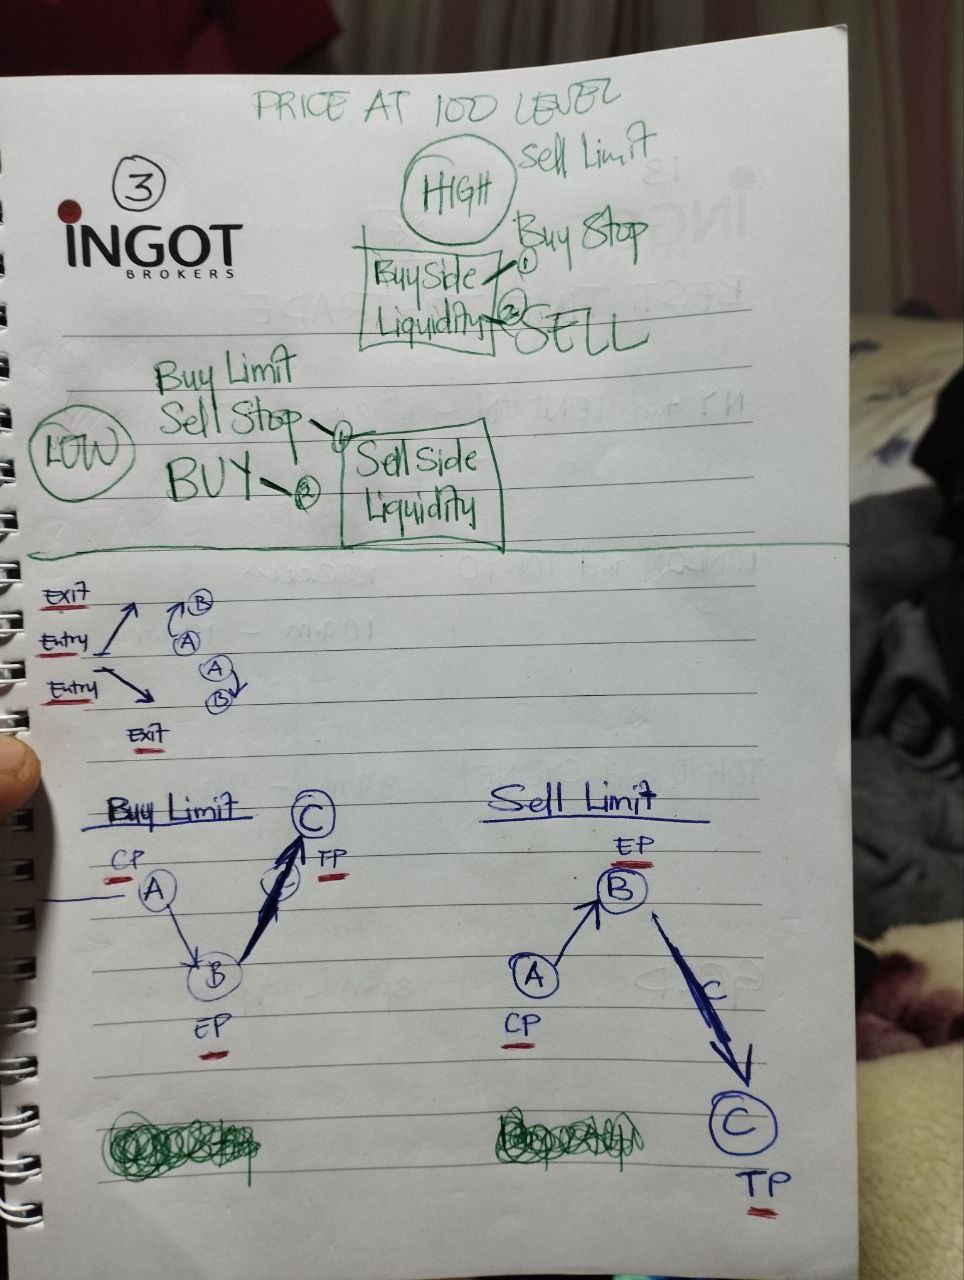 PRICE AT 100 LEVEL
3
iNGOT
BROKERS
HIGH
Sell Limit
Buy Stop
1
Buy Side
Liquidity
2
SELL
Buy Limit
Sell Stop
1
LOW
BUY
2
Sell Side
Liquidity
Exit
B
Entry
A
A
Entry
B
Exit
Buy Limit
C
CP
TP
A
B
EP
Sell Limit
EP
B
A
C
CP
C
TP